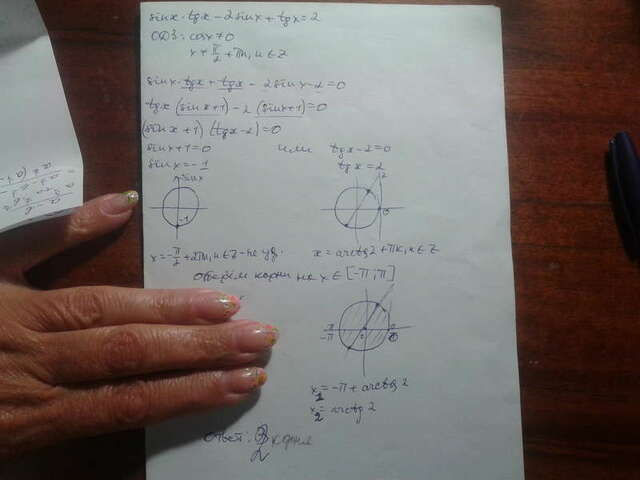 sinx·tgx-2sinx+tgx=2
ОДЗ: cosx≠0
x≠π/2+πn, n∈Z
sinx·tgx+tgx-2sinx-2=0
tgx(sinx+1)-2(sinx+1)=0
(sinx+1)(tgx-2)=0
sinx+1=0 или tgx-2=0
sinx=-1 tgx=2
sinx 2
-1 0
x=-π/2+2πn, n∈Z - не уд. x=arctg2+πk, k∈Z
Отберём корни на x∈[-π;π]
-π
x₁=-π+arctg2
x₂=arctg2
Ответ: 2 корня